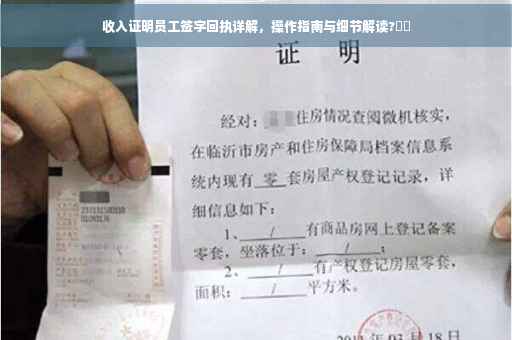 收入证明员工签字回执详解，操作指南与细节解读?
证 明
经对：住房情况查阅微机核实，
在临沂市房产和住房保障局档案信息系
统内现有 零 套房屋产权登记记录，详
细信息如下：
1、 / 有商品房网上登记备案
零套，坐落位于： / ；
2、 / 有产权登记房屋零套，
面积： / 平方米。
03月18日